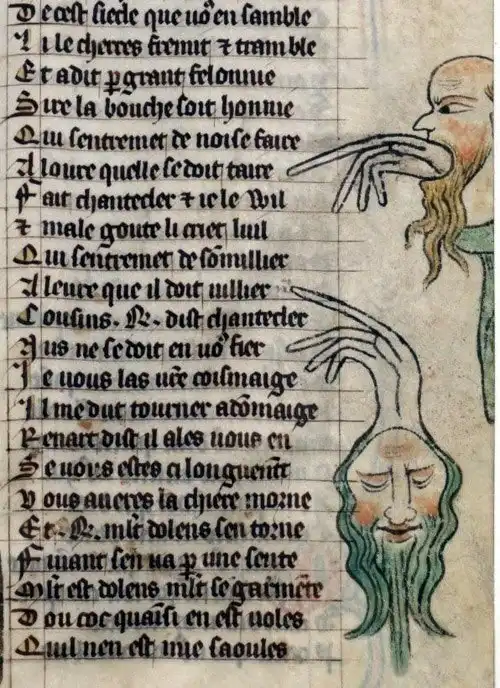 De cest siecle que uos en samble
Li lecherres fremist ⁊ tramble
Et a dit p grant felonnie
Sire la bouche soit honnie
Qui sentremet de noise faire
A loure quelle se doit taire
Fait chantecler ⁊ ie le Wil
⁊ male goute li criet luil
Qui sentremet de sõmillier
A leure que il doit uillier
Cousins .R. dist chantecler
Nus ne se doit en uoˢ fier
Je uous las ure coismaige
Il me dut tourner a dõmaige
Renart dist il ales uous en
Se uous estes ci longuemt
Vous aueres la chiere morne
Et .R. mlt dolens sen torne
Fuiant sen ua p une sente
Mlt est dolens mlt se garmẽte
Dou coc quaisi en est uoles
Quil nen est mie saoules